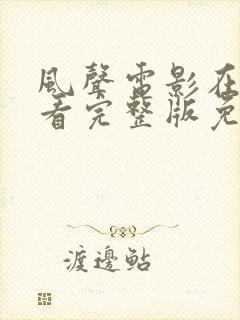 風聲電影在
看完整版免
渡邊鮎